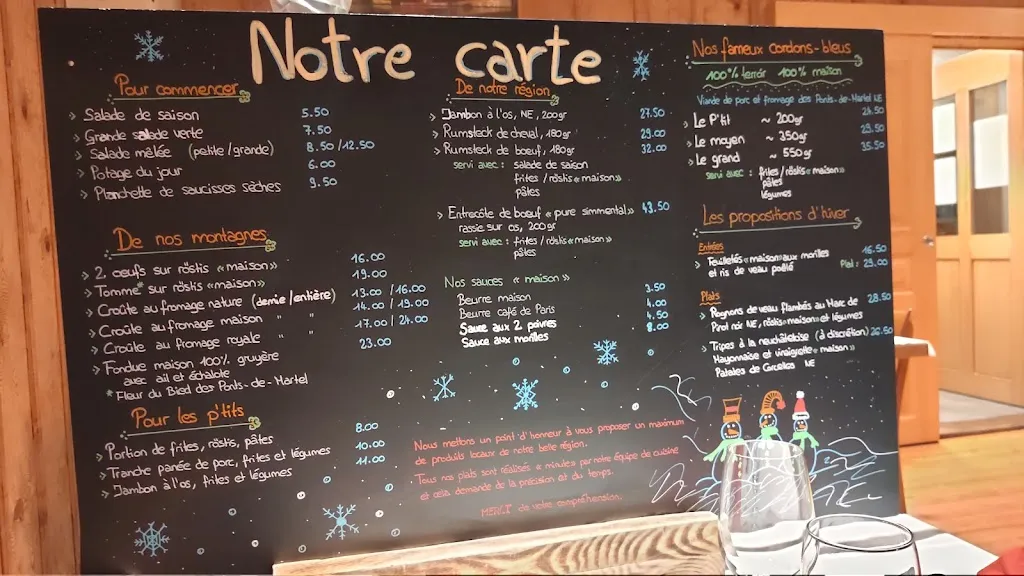 Notre carte
Pour commencer
> Salade de saison 5.50
> Grande salade verte 7.50
> Salade mêlée (petite/grande) 8.50/12.50
> Potage du jour 6.00
> Planchette de saucisses sèches 9.50
De nos montagnes
> 2 oeufs sur röstis «maison» 16.00
> Tomme* sur röstis «maison» 19.00
> Croûte au fromage nature (demie/entière) 13.00 / 16.00
> Croûte au fromage maison " " 14.00 / 19.00
> Croûte au fromage royale " " 17.00 / 24.00
> Fondue maison 100% gruyère 23.00
avec ail et échalote
* Fleur du Bied des Ponts-de-Martel
Pour les p'tits
> Portion de frites, röstis, pâtes 8.00
> Tranche panée de porc, frites et légumes 10.00
> Jambon à l'os, frites et légumes 11.00
De notre région
> Jambon à l'os, NE, 200gr 27.50
> Rumsteck de cheval, 180gr 29.00
> Rumsteck de boeuf, 180gr 32.00
servi avec : salade de saison
frites / röstis «maison»
pâtes
> Entrecôte de boeuf «pure simmental» 43.50
rassie sur os, 200gr
servi avec : frites / röstis «maison»
pâtes
Nos sauces «maison»
Beurre maison 3.50
Beurre café de Paris 4.00
Sauce aux 2 poivres 4.50
Sauce aux morilles 8.00
Nous mettons un point d'honneur à vous proposer un maximum
de produits locaux de notre belle région.
Tous nos plats sont réalisés «minute» par notre équipe de cuisine
et cela demande de la précision et du temps.
MERCI de votre compréhension.
Nos fameux cordons-bleus
100% terroir 100% maison
Viande de porc et fromage des Ponts-de-Martel NE
> Le P'tit ~ 200gr
> Le moyen ~ 350gr 29.50
> Le grand ~ 550gr 35.50
servi avec : frites / röstis «maison»
pâtes
légumes
Les propositions d'hiver
Entrées
> Feuilletés «maison» aux morilles 16.50
et ris de veau poêlé Plat : 29.00
Plats
> Rognons de veau flambés au Marc de 28.50
Pinot noir NE, röstis maison et légumes
> Tripes à la neuchâteloise (à discrétion) 26.50
Mayonnaise et vinaigrette «maison»
Patates de NE